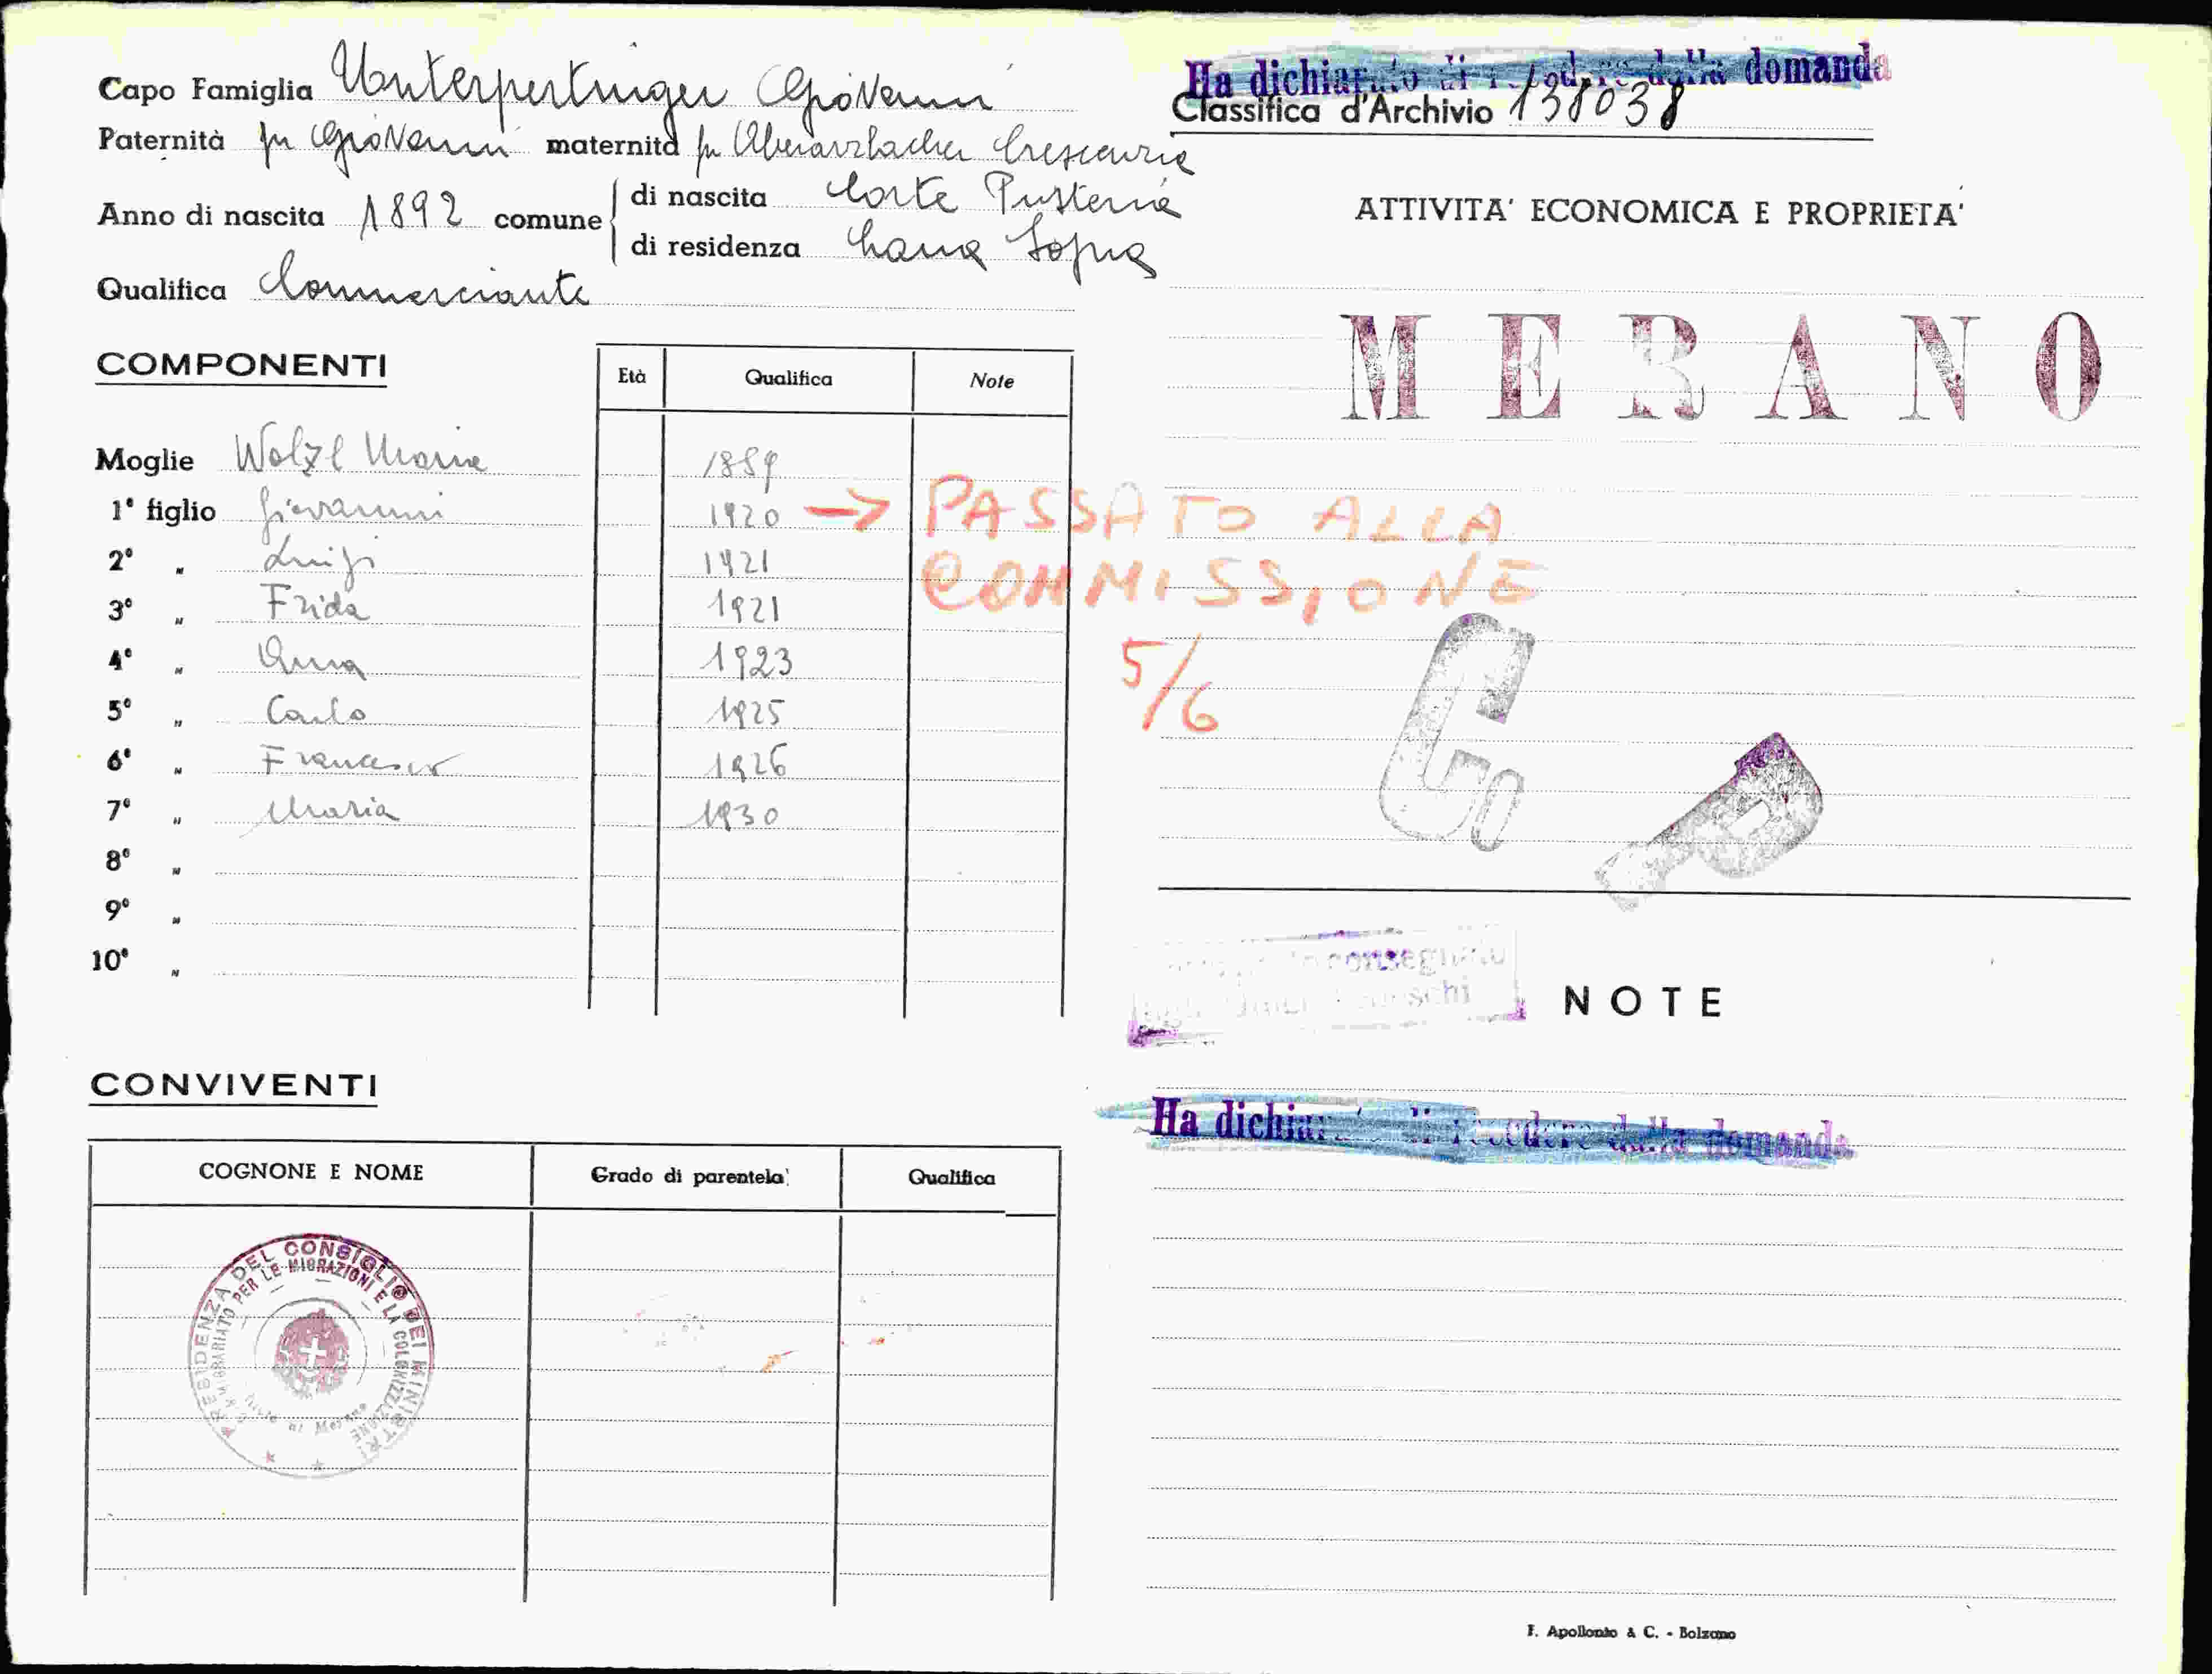 Capo Famiglia Unterpertinger Giovanni
Paternità fu Giovanni maternità fu Oberarzbacher Crescenzia
Anno di nascita 1892 comune
di nascita Corte Pusteria
di residenza Lana Sopra
Qualifica Commerciante
COMPONENTI
Età Qualifica Note
Moglie Wolzl Maria 1889
1° figlio Giovanni 1920 → PASSATO ALLA
2° " Luigi 1921 COMMISSIONE
3° " Frida 1921
4° " Anna 1923 5/6
5° " Carlo 1925
6° " Francesco 1926
7° " Maria 1930
8° "
9° "
10° "
CONVIVENTI
COGNONE E NOME Grado di parentela Qualifica
PRESIDENZA DEL CONSIGLIO DEI MINISTRI
PER LE MIGRAZIONI E LA COLONIZZAZIONE
di Merano
Ha dichiarato di recedere dalla domanda
Classifica d'Archivio 138038
ATTIVITA' ECONOMICA E PROPRIETA'
MERANO
C
P
consegnato
NOTE
Ha dichiarato di recedere dalla domanda
F. Apollonio & C. - Bolzano